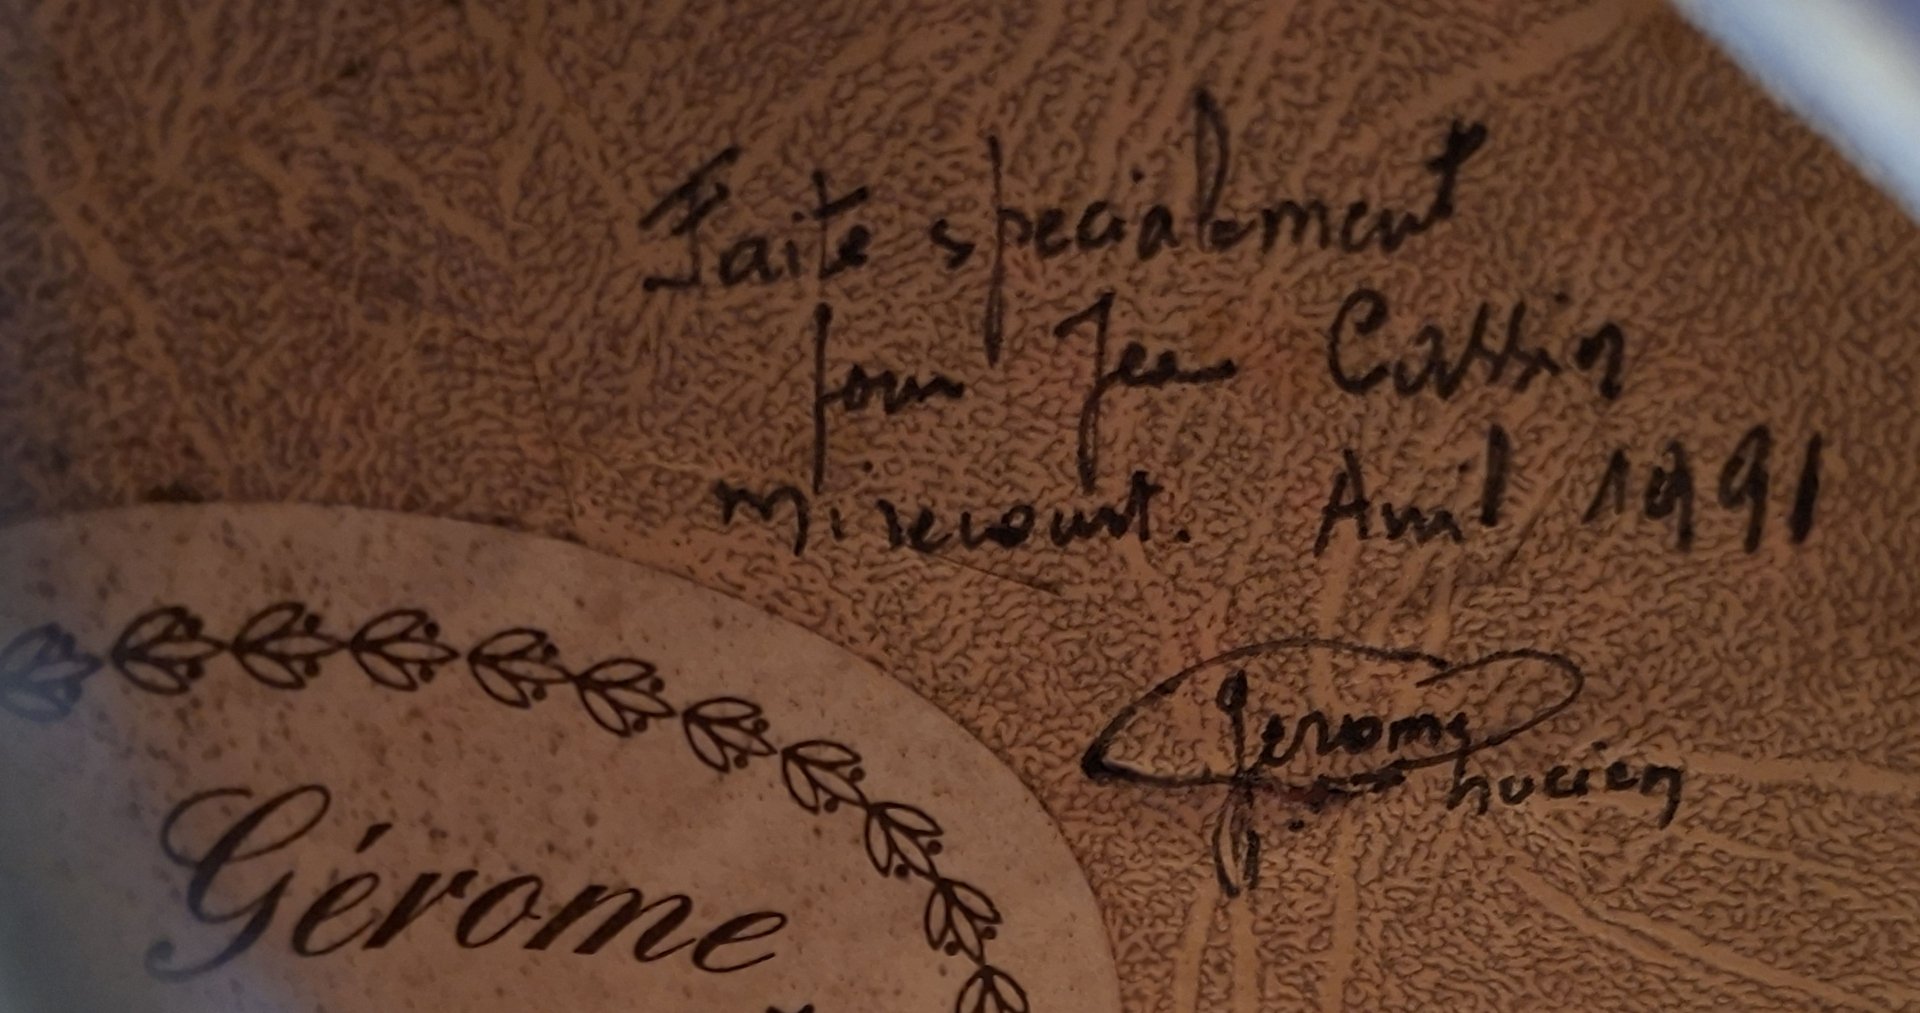 Faite specialement
pour Jean Cassin
Mirecourt. Avril 1991
Gerome
Lucien
Gérome